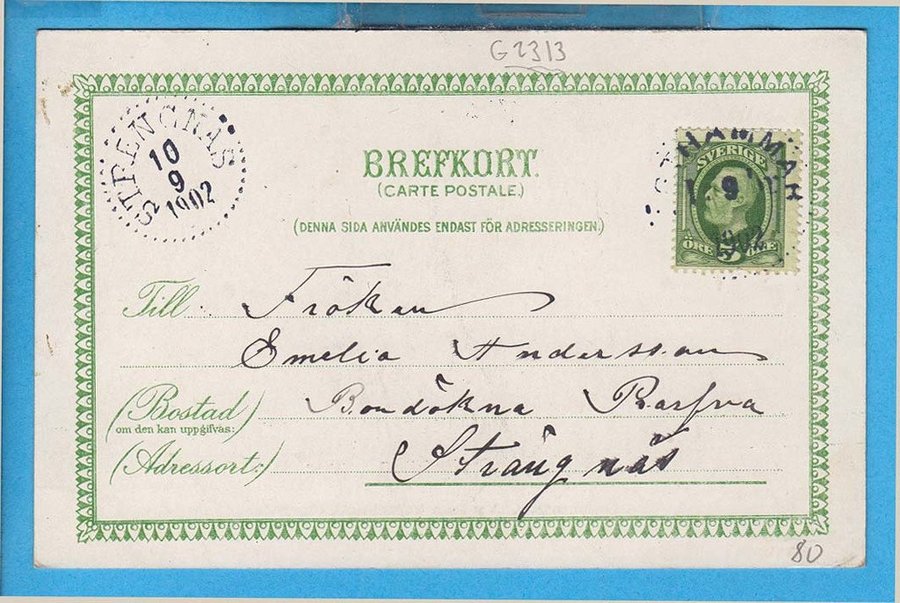 G2313
STRENGNÄS
10
9
1902
BREFKORT.
(CARTE POSTALE.)
(DENNA SIDA ANVÄNDES ENDAST FÖR ADRESSERINGEN.)
HAMMAR
SVERIGE
9
1902
ÖRE 5 ÖRE
Till Fröken
Emelia Andersson
(Bostad) Bondökna
om den kan uppgifvas:
(Adressort:) Strängnäs
80